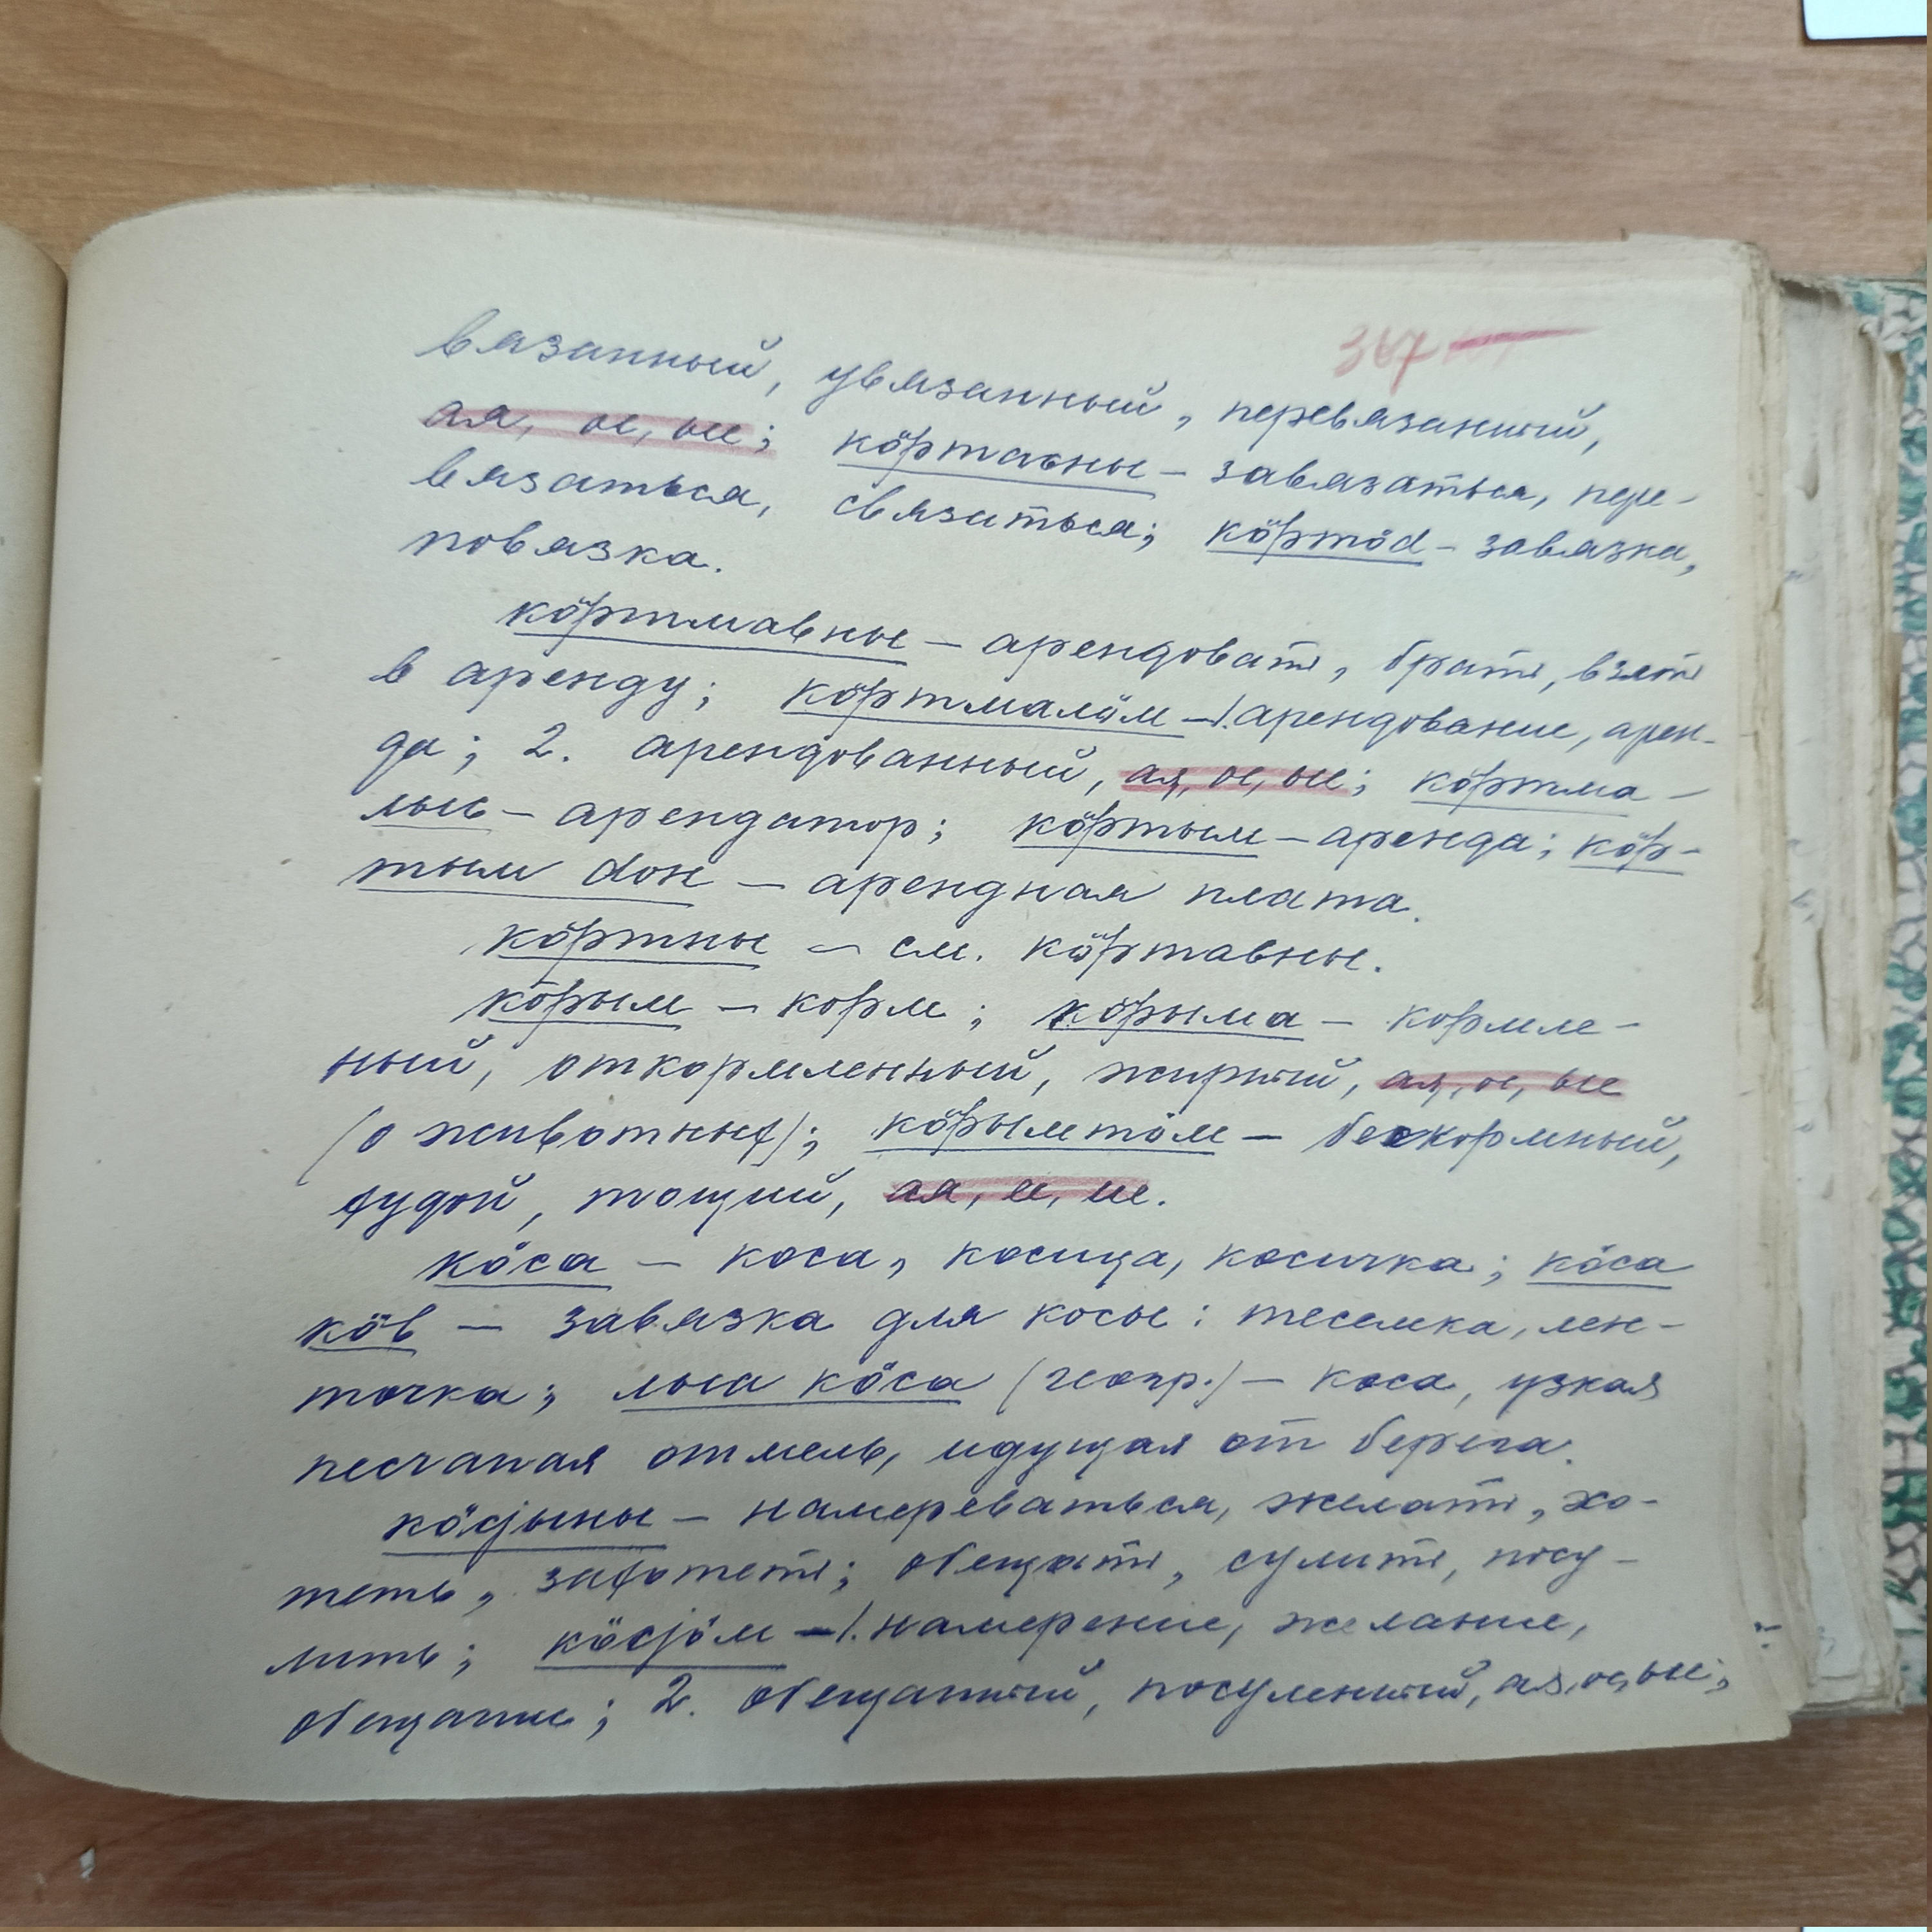 367
вязанный, увязанный, перевязанный,
ая, ое, ые; кӧртасьны – завязаться, пере-
вязаться, связаться; кӧртӧd – завязка,
повязка.
кӧртмавны – арендовать, брать, взять
в аренду; кӧртмалӧм – 1. арендование, арен-
да; 2. арендованный, ая, ое, ые; кӧртма-
лысь – арендатор; кӧртым – аренда; кӧр-
тым dон – арендная плата.
кӧртны – см. кӧртавны.
кӧрым – корм; кӧрыма – кормле-
ный, откормленный, жирный, ая, ое, ые
(о животных); кӧрымтӧм – бескормный,
худой, тощий, ая, ее, ие.
кӧса – коса, косица, косичка; кӧса
кӧв – завязка для косы: тесемка, лен-
точка; лыа кӧса (геогр.) – коса, узкая
песчаная отмель, идущая от берега.
кӧсјыны – намереваться, желать, хо-
теть, захотеть; обещать, сулить, посу-
лить; кӧсјӧм – 1. намерение, желание,
обещание; 2. обещанный, посуленный, ая, ое, ые;